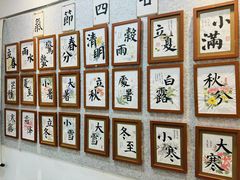 廿四節氣
立春 雨水 驚蟄 春分 清明 穀雨 立夏 小滿
芒種 夏至 小暑 大暑 立秋 處暑 白露 秋分
寒露 霜降 立冬 小雪 大雪 冬至 小寒 大寒